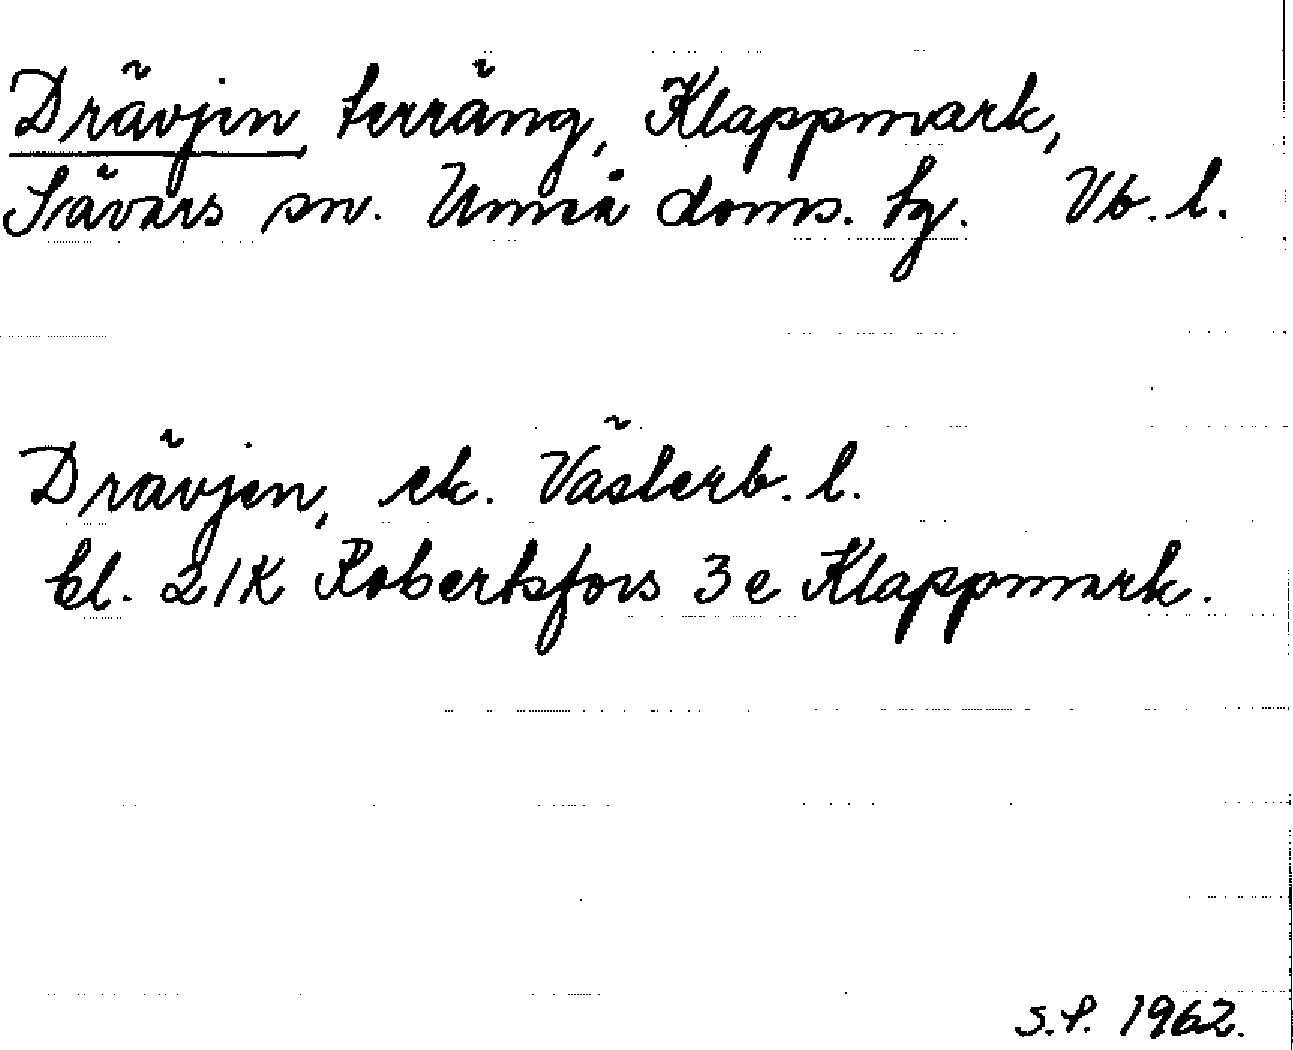 Drävjen, terräng, Klappmark,
Sävars sn. Umeå doms. tg. Vb. l.
Drävjen, ek. Västerb. l.
bl. 21K Robertsfors 3e Klappmark.
S.P. 1962.